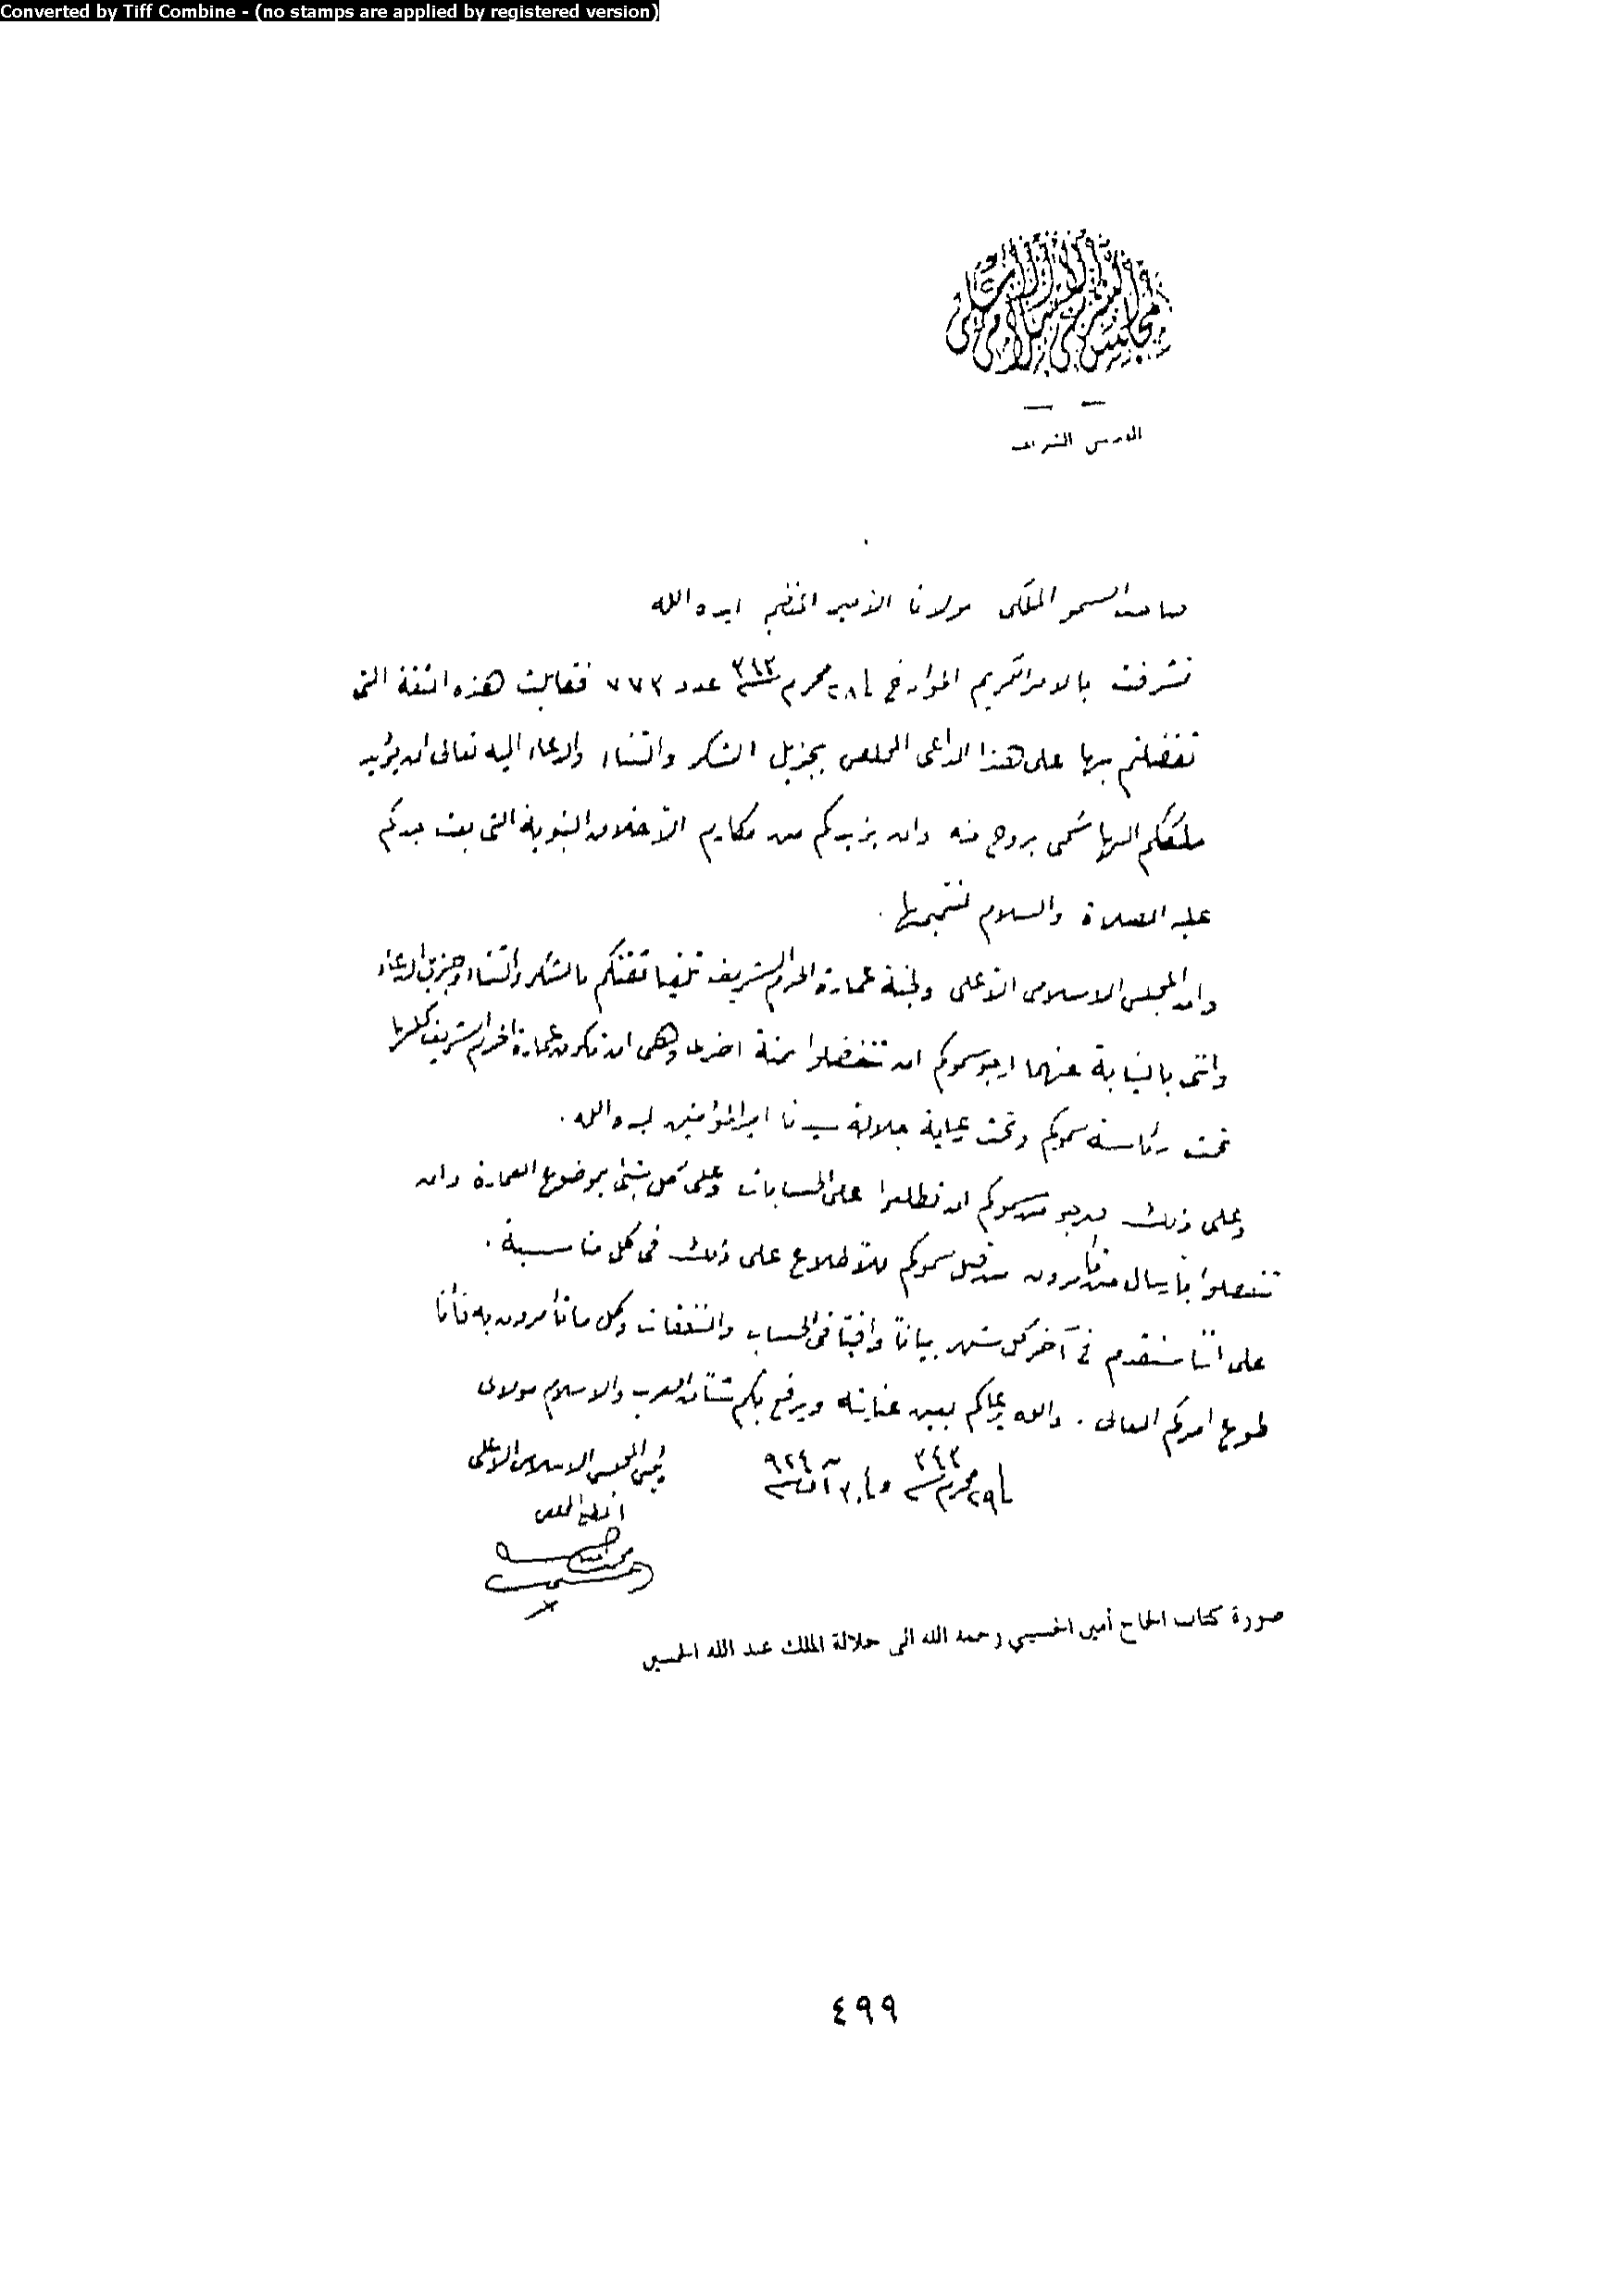 Converted by Tiff Combine - (no stamps are applied by registered version)
المجلس الشرعي الاسلامي الاعلى
القدس الشريف
صاحب السمو الملكي مولانا الأمير المفخم ايده الله
تشرفت بالامر الكريم المؤرخ في ٢٨ محرم ٣٤٣ عدد ٧٧٣ فقابلت هذه الثقة التي
تفضلتم بها على هذا الداعي المخلص بجزيل الشكر والثناء والدعاء اليه تعالى ان يؤيد
ملككم الهاشمي بروح منه وان يزيدكم من مكارم الأخلاق النبوية التي بعث جدكم
عليه الصلاة والسلام لتتميمها .
وان المجلس الاسلامي الأعلى ولجنة عمارة الحرم الشريف تلقيا ثقتكم بالشكر والثناء وجزيل الدعاء
وانني بالنيابة عنهما ارجو سموكم ان تتفضلوا بمنة اخرى وهي ان تكون عمارة الحرم الشريف كلها
تحت رئاسة سموكم وتحت حماية جلالة سيدنا امير المؤمنين ايده الله .
وعلى ذلك نرجو من سموكم ان تطلعوا على الحسابات وعلى كل شيء بموضوع العمارة وان
تتفضلوا بأرسال من تأمرون من قبل سموكم للأطلاع على ذلك في كل مناسبة .
على اننا سنقدم في آخر كل شهر بياناً وافياً في الحساب والنفقات وكل ما تأمرون به فأنا
طوع امركم العالي . والله يرعاكم بعين عنايته ويرفع بكم شأن العرب والاسلام مولاي
٢٩ محرم ٣٤٣ و ٣٠ آب ٩٢٤
رئيس المجلس الاسلامي الأعلى
المخلص
صورة كتاب الحاج أمين الحسيني رحمه الله الى جلالة الملك عبد الله الحسين
٤٩٩